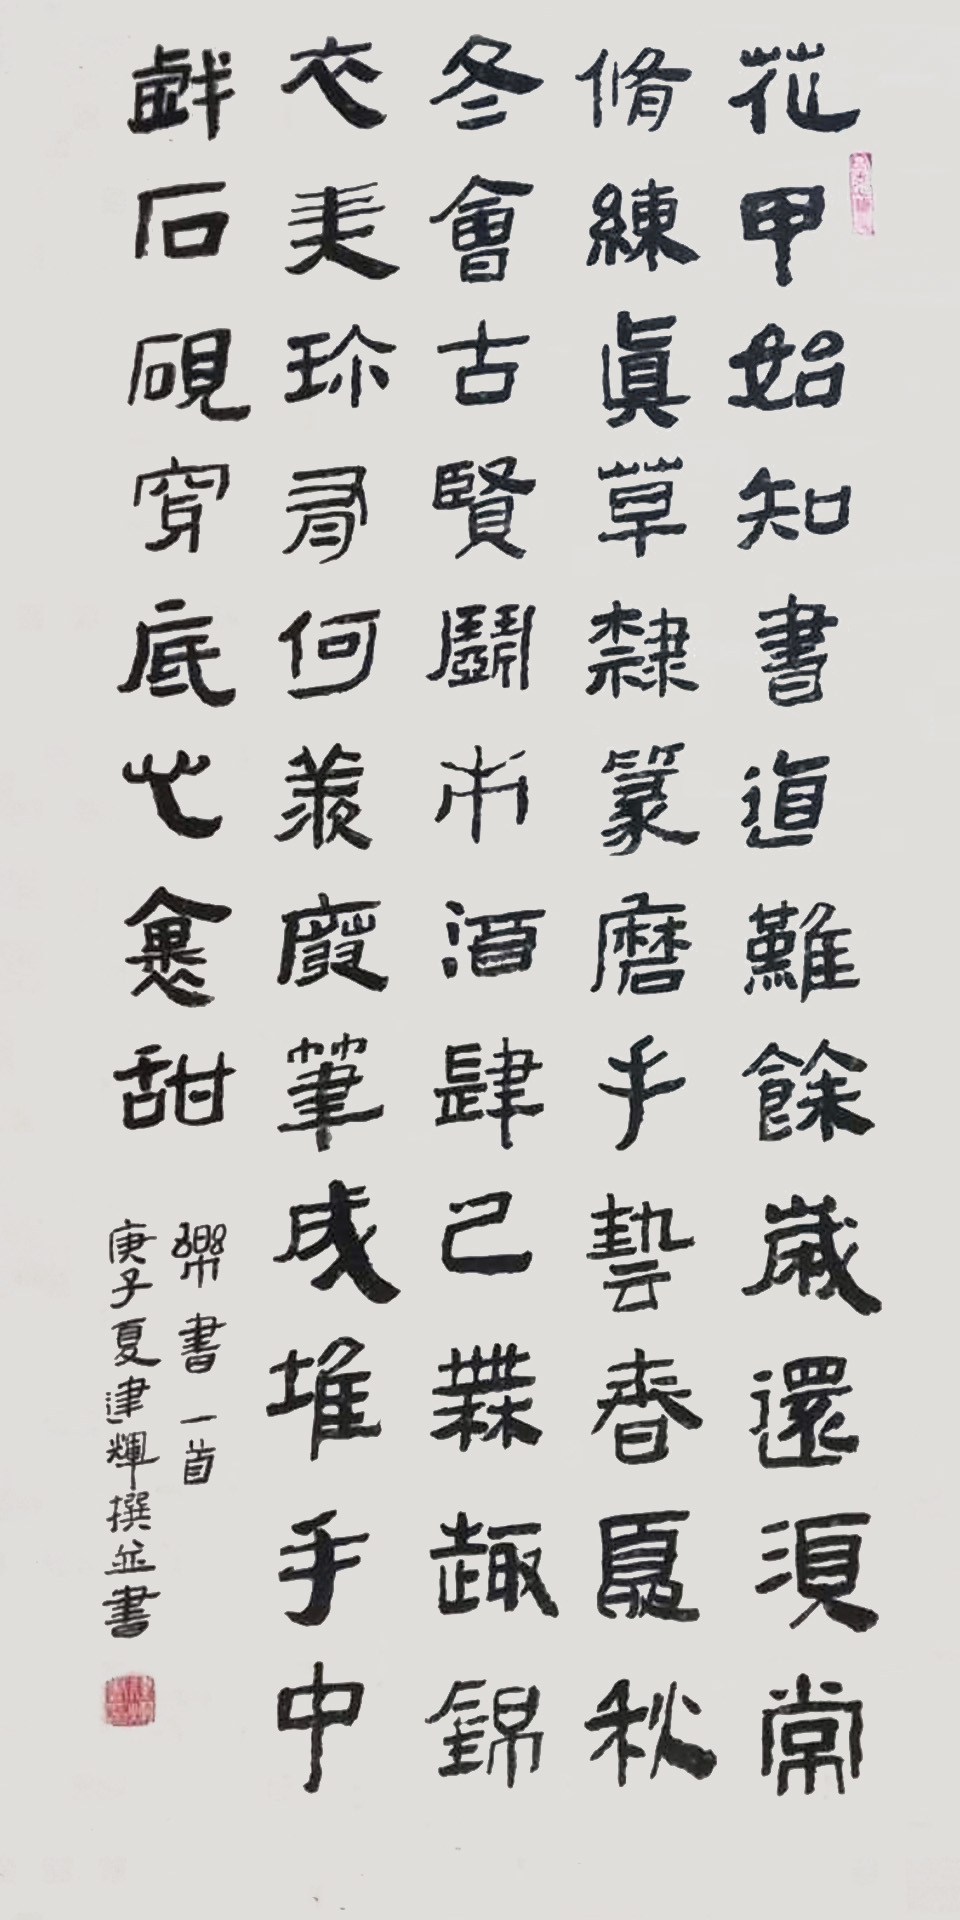 花甲始知書道難餘歲還須常
脩練眞草隸篆磨手藝春夏秋
冬會古賢鬧市酒肆已無趣錦
衣美珎有何羨廢筆成堆手中
戲石硯穿底心愈甜
樂書一首
庚子夏建輝撰並書